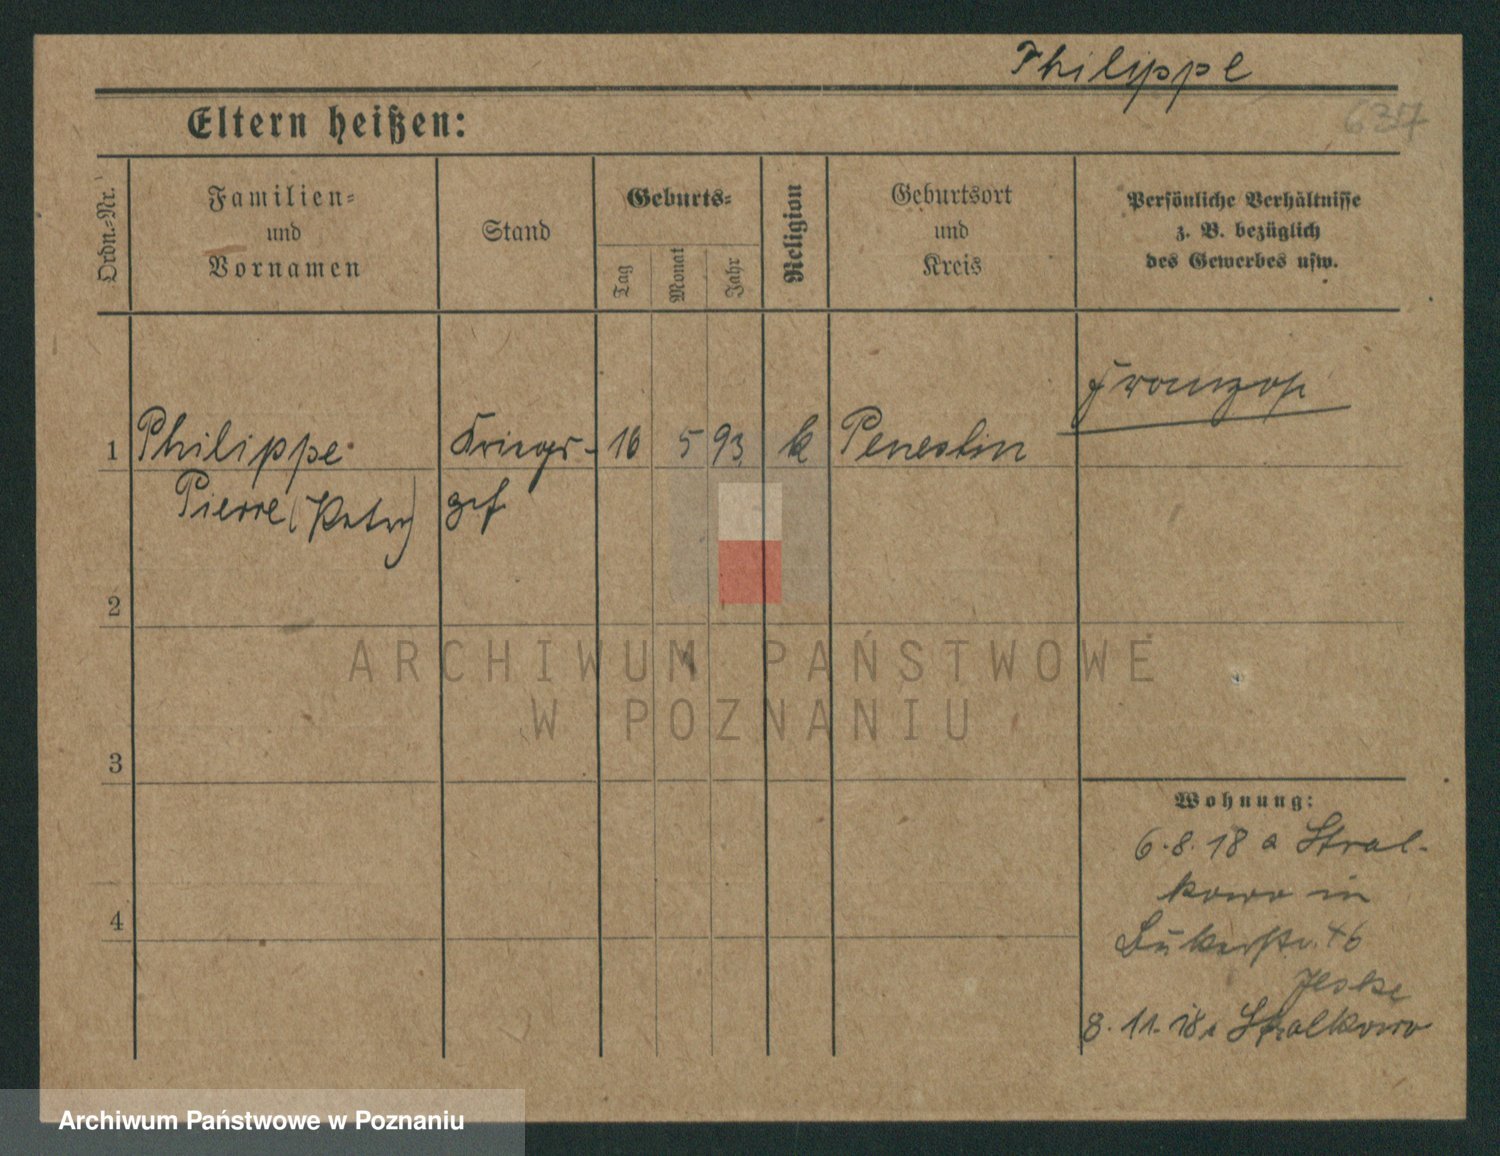 Philippe
637
Eltern heißen:
Ordn.-Nr.
Familien-
und
Vornamen
Stand
Geburts-
Tag
Monat
Jahr
Religion
Geburtsort
und
Kreis
Persönliche Verhältnisse
z. B. bezüglich
des Gewerbes usw.
Franzose
1 Philippe Kriegs- 16 5 93 k Penestin
Pierre (Peter) gef
2
3
4
Wohnung:
6.8.18 a Stral-
kowo in
Bukerstr. 46
Jeske
8.11.18 a Stralkowo
ARCHIWUM PAŃSTWOWE
W POZNANIU
Archiwum Państwowe w Poznaniu